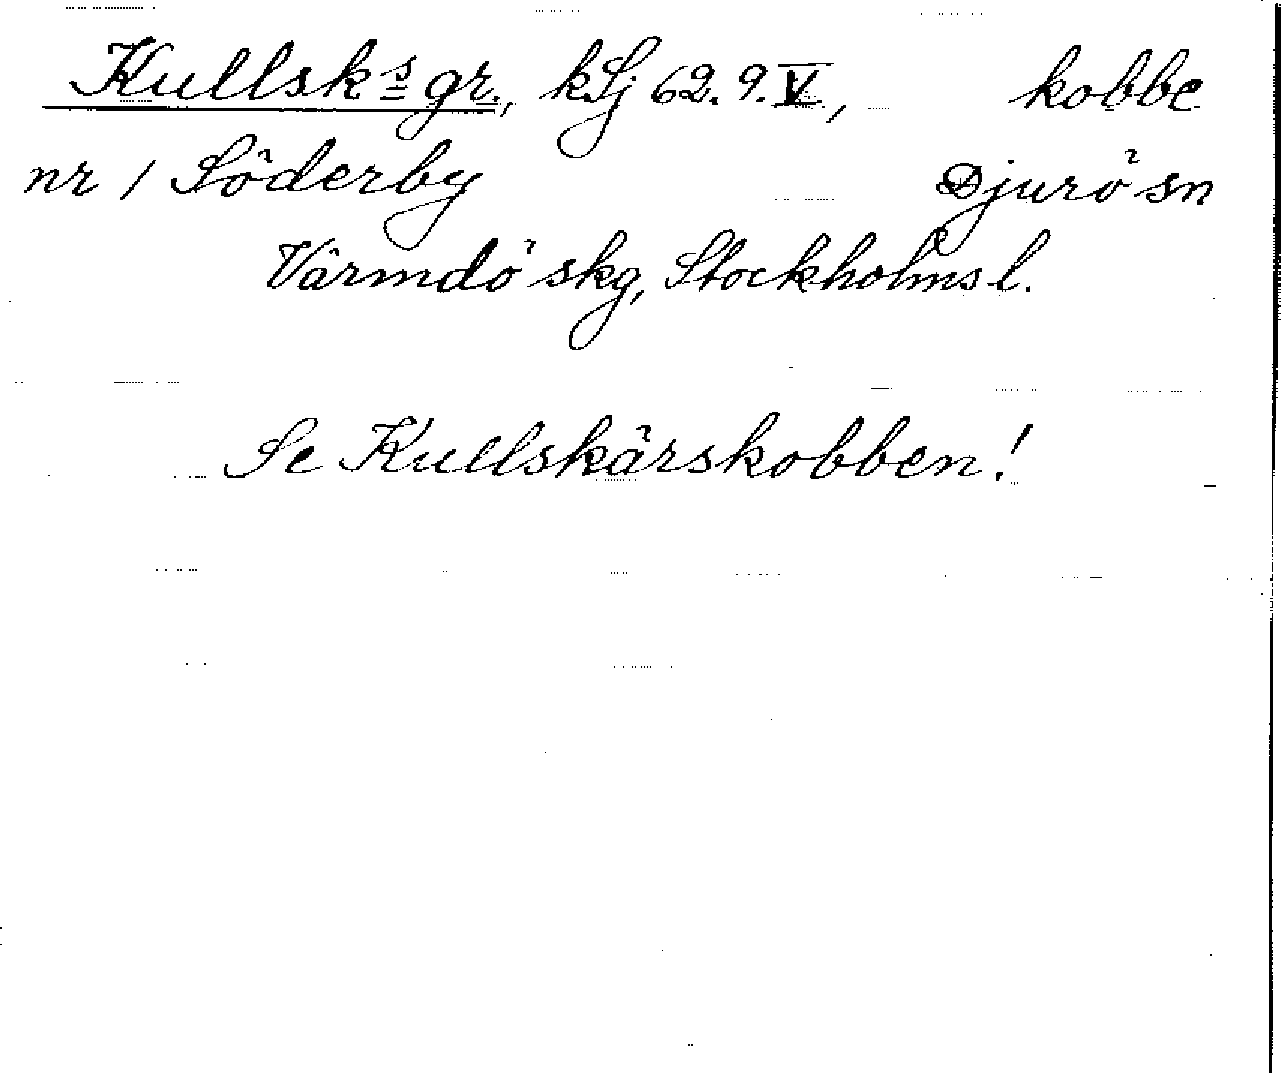 Kullsksgr., kSj 62. 9. V, kobbe
nr 1 Söderby Djurö sn
Värmdö skg, Stockholms l.
Se Kullskärskobben!